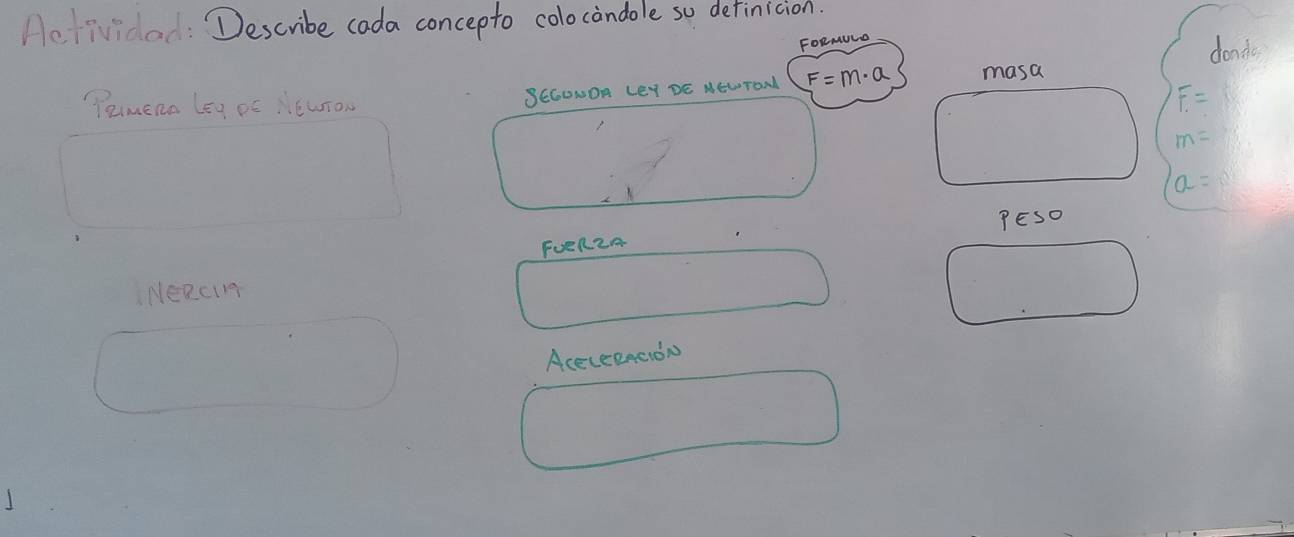 Actividad: Describe cada concepto colocándole su definicion.
PRIMERA LEY DE NEWTON
INERCIA
SEGUNDA LEY DE NEWTON
FORMULA
F = m·a
FUERZA
ACELERACIÓN
masa
PESO
donde
F =
m =
a =